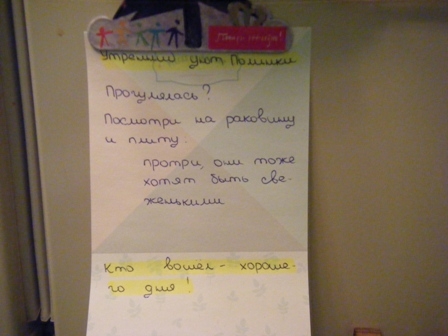 Утренний уют Полинки
Прогулялась?
Посмотри на раковину
и плиту.
протри, они тоже
хотят быть све-
женькими
Кто вошёл - хороше-
го дня!